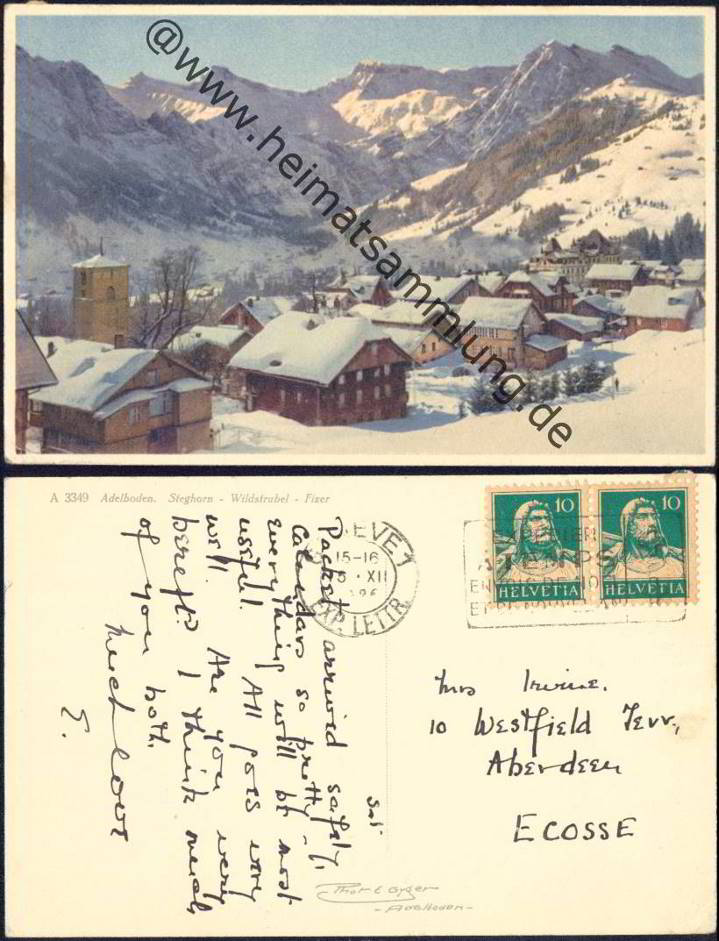 @www.heimatsammlung.de
A 3349 Adelboden. Steghorn - Wildstrubel - Fizer
EXP. LETTR.
15-16
XII
10 10
HELVETIA HELVETIA
Sat
Packet arrived safely,
Calendars so pretty -
everything will be most
useful. All goes very
well. Are you very
bereft? I think much
of you both.
Much love
E.
Mrs Irvine.
10 Westfield Terr,
Aberdeen
ECOSSE
Phot E Gyger
- Adelboden -